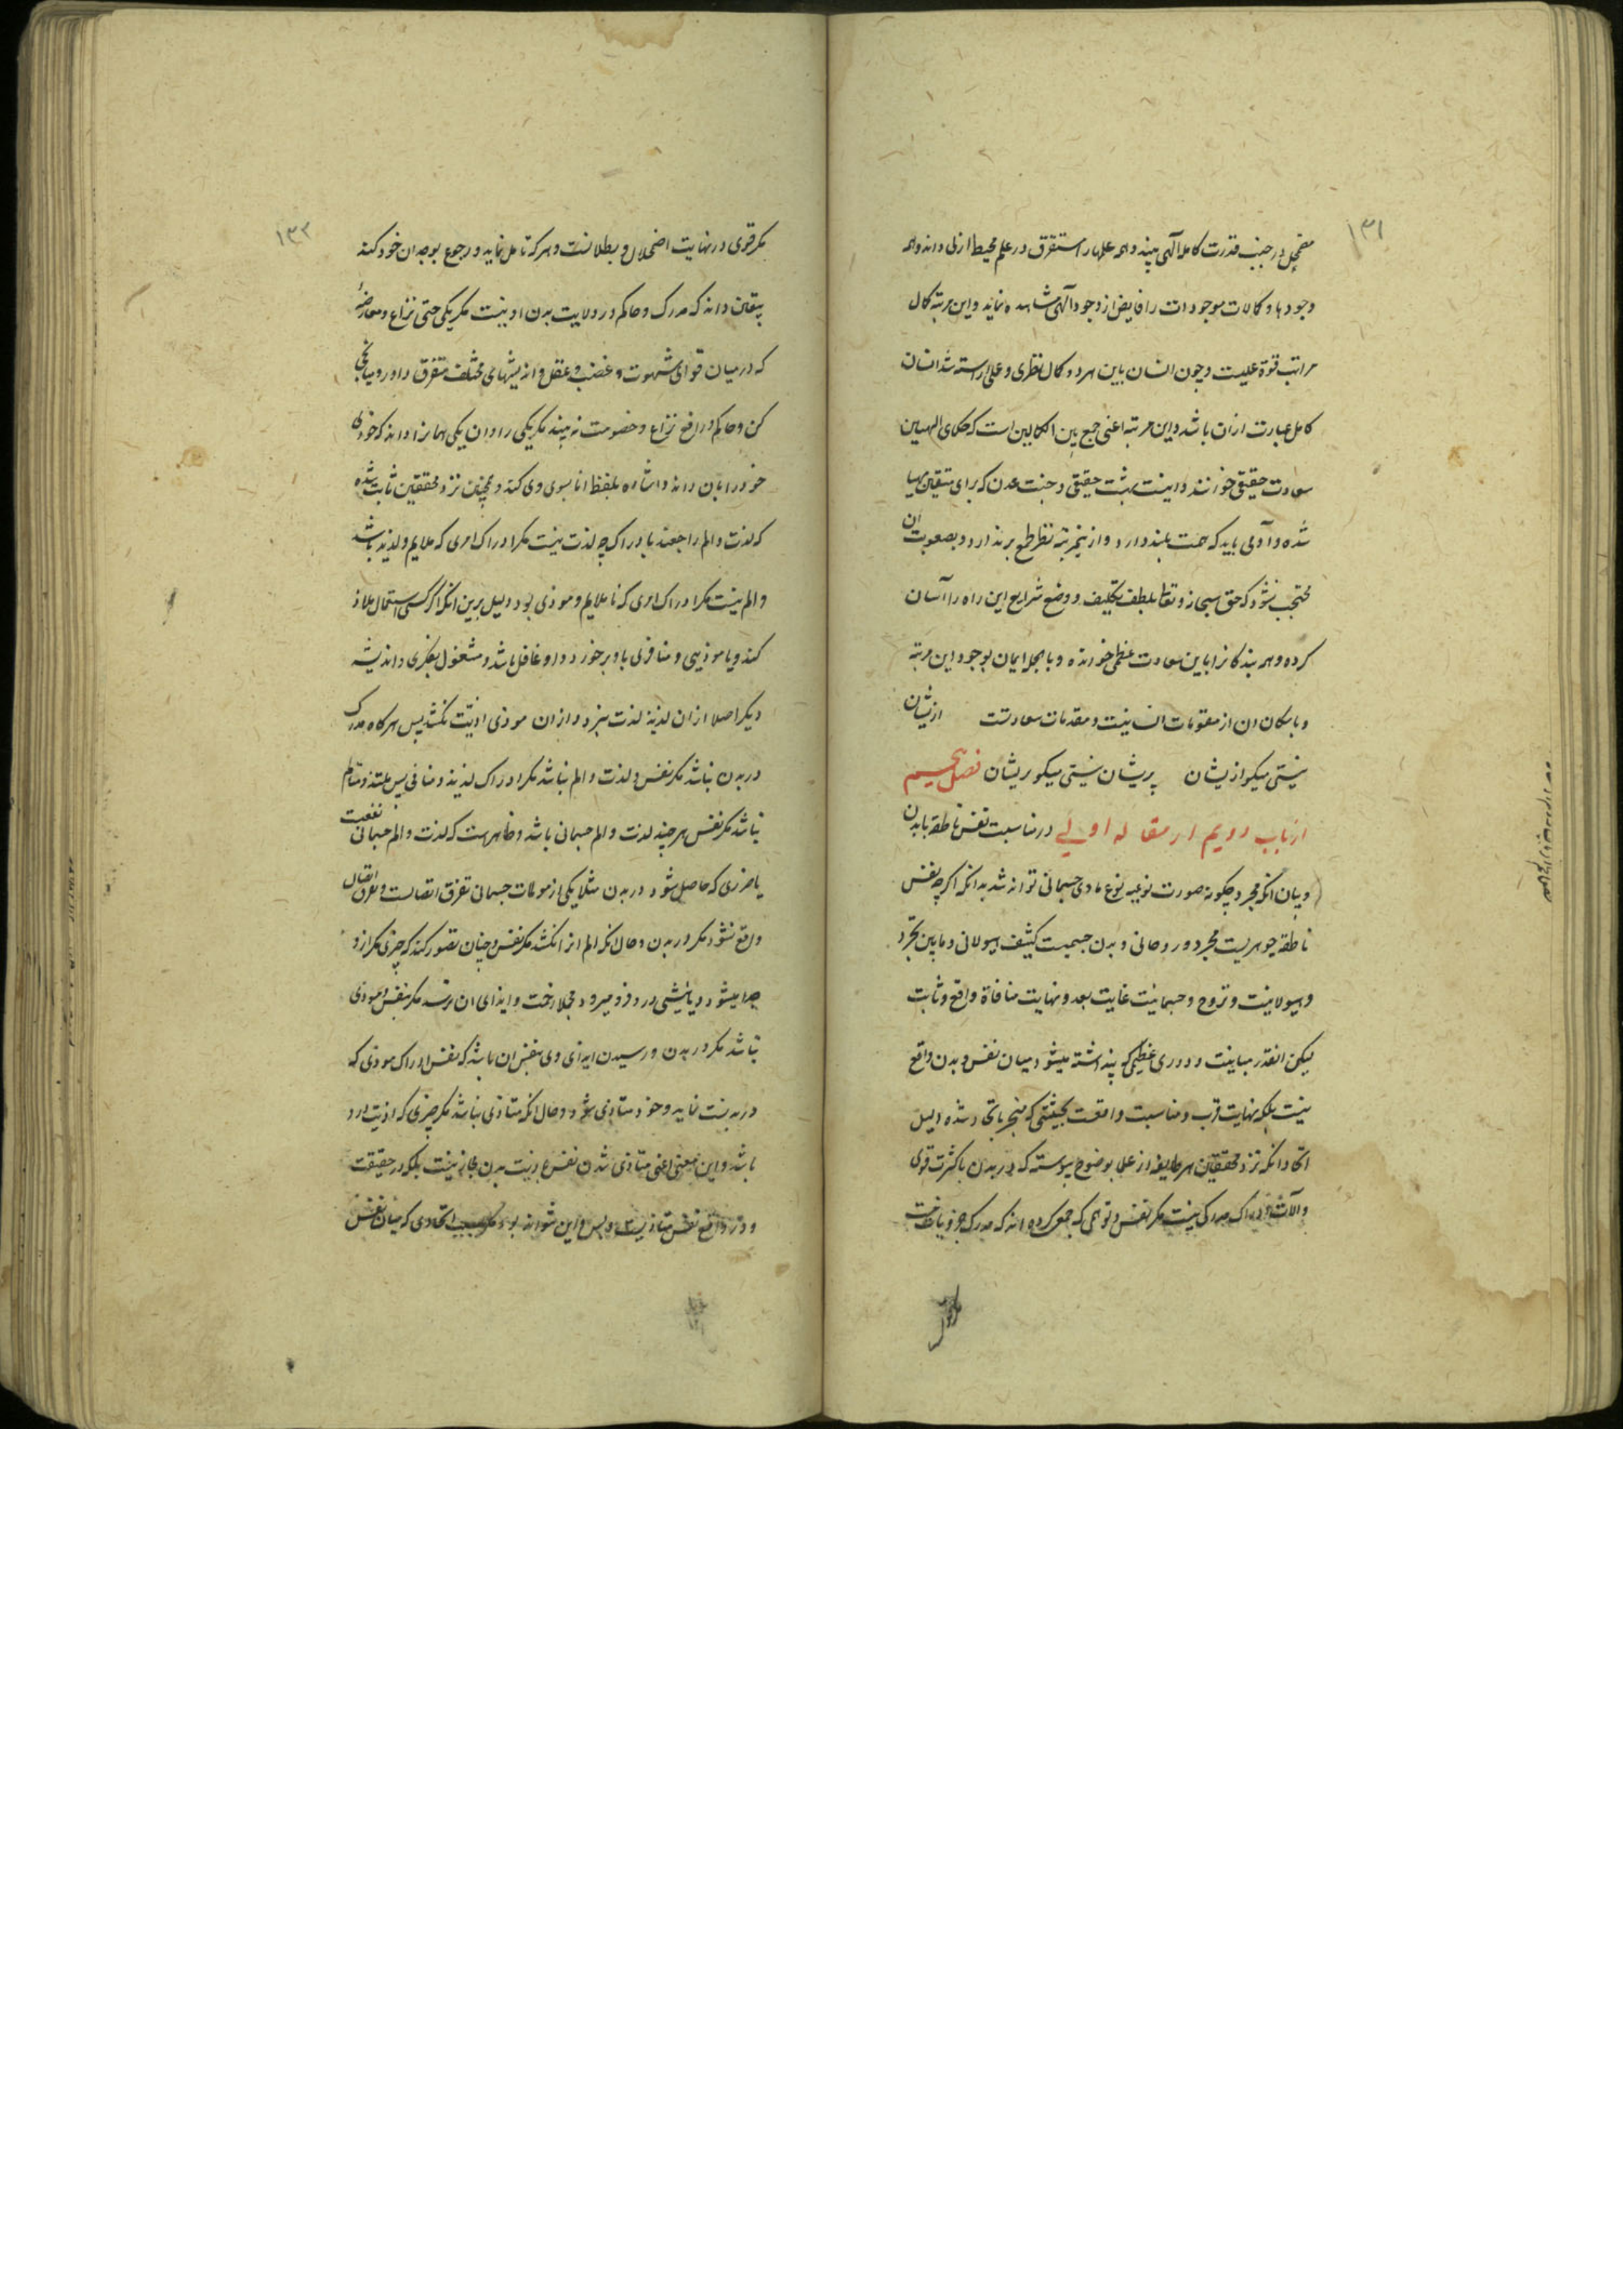 ۱۳۱
مضمحل در جنب قدرت کامله الهی بیند و همه علمها را مستغرق در علم محیط ازلی داند و همه
وجودها و کمالات موجودات را فایض از وجود الهی مشاهده نماید و این مرتبه کمال
مراتب قوة عملیست و چون انسان باین هر دو کمال نظری و عملی اراسته شد انسان
کامل عبارت ازان باشد و این مرتبه اعنی جمع بین الکمالین است که حکمای الهیین
سعادت حقیقی خوانند و اینست بهشت حقیقی و جنت عدن که برای متقین مهیا
شده و آدمی باید که همت بلند دارد و ازینمرتبه نظر طمع بر ندارد و بصعوبت ان
محتجب نشود که حق سبحانه و تعالی بلطف تکلیف و وضع شرایع این راه را آسان
کرده و همه بندکانرا باین سعادت عظمی خوانده و بالجمله ایمان بوجود این مرتبه
و بامکان ان از مقومات انسانیت و مقدمات سعادتست ازیشان
نیستی میکو ازیشان پریشان نیستی میکو پریشان فصل پنجم
از باب دویم از مقاله اولی در مناسبت نفس ناطقه با بدن
و بیان انکه مجرد چکونه صورت نوعیه نوع مادی جسمانی تواند شد بدانکه اکر چه نفس
ناطقه جوهریست مجرد و روحانی و بدن جسمیست کثیف هیولانی و مابین تجرد
و هیولانیت و تروح و جسمانیت غایت بعد و نهایت منافاة واقع و ثابت
لیکن انقدر مباینت و دوری عظیمی که پنداشته میشود میان نفس و بدن واقع
نیست بلکه نهایت قرب و مناسبت واقعست بحیثیتی که منجر باتحاد شده دلیل
اتحاد انکه نزد محققین هر طایفه از علما بوضوح پیوسته که در بدن با کثرت قوی
و آلات ادراک مدرکی نیست مکر نفس و توهمی که جمع کرده اند که مدرک جزویات
۱۳۲
مکر قوی در نهایت اضمحلال و بطلانست و هر که تامل نماید و رجوع بوجدان خود کند
بیقین داند که مدرک و حاکم در ولایت بدن او نیست مکر یکی حتی نزاع و معارضهٔ
که در میان قوای شهوت و غضب و عقل و اندیشهای مختلف متفرق داور و میانجی
کن و حاکم در رفع نزاع و خصومت نه بیند مکر یکی را و ان یکی همانرا داند که خودی
خود را بان داند و اشاره بلفظ انا بسوی وی کند و همچنین نزد محققین ثابت شده
که لذت و الم راجعند بادراک چه لذت نیست مکر ادراک امری که ملایم و لذیذ باشد
و الم نیست مکر ادراک امری که ناملایم و موذی بود و دلیل برین انکه اکر کسی استعمال ملاذ
کند و یا موذیی و منافری باو بر خورد و او غافل باشد و مشغول بفکری و اندیشه
دیکر اصلا ازان لذیذ لذت نبرد و ازان موذی اذیت نکشد پس هر کاه مدرک
در بدن نباشد مکر نفس و لذت و الم نباشد مکر ادراک لذیذ و منافی پس ملتذ و متالم
نباشد مکر نفس هر چند لذت و الم جسمانی باشد و ظاهرست که لذت و الم جسمانی نفعیست
یا ضرری که حاصل شود در بدن مثلا یکی از مولمات جسمانی تفرق اتصالست و تفرق اتصال
واقع نشود مکر در بدن و حال انکه الم انرا نکشد مکر نفس و چنان تصور کند که چیزی مکر ازو
جدا میشود و یا نیشی در درو فرو میرود و مجملا زحمت و ایذای ان نرسد مکر بنفس و موذی
نباشد مکر در بدن و رسیدن ایذای وی بنفس ان باشد که نفس ادراک موذی که
در بدنست نماید و خود متاذی شود و حال انکه متاذی نباشد مکر چیزی که اذیت ارد
باشد و این معنی اعنی متاذی شدن نفس باذیت بدن مجاز نیست بلکه در حقیقت
و در واقع نفس متاذیست و بس و این نتواند بود مکر بسبب اتحادی که میان نفس